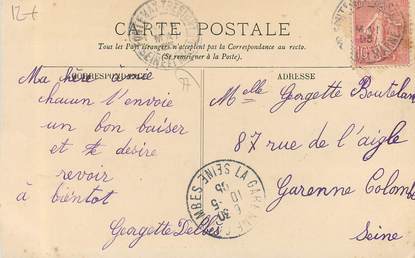 12 f
CARTE POSTALE
Tous les Pays étrangers n'acceptent pas la Correspondance au recto.
(Se renseigner à la Poste).
CORRESPONDANCE
Ma
chacun t'envoie
un bon baiser
et te desire
revoir
à bientot
Georgette
ADRESSE
Melle Georgette Boutelan
87 rue de l'aigle
Garenne Colombe
Seine
LA GARENNE COLOMBES SEINE
6 30
10 - 5
05